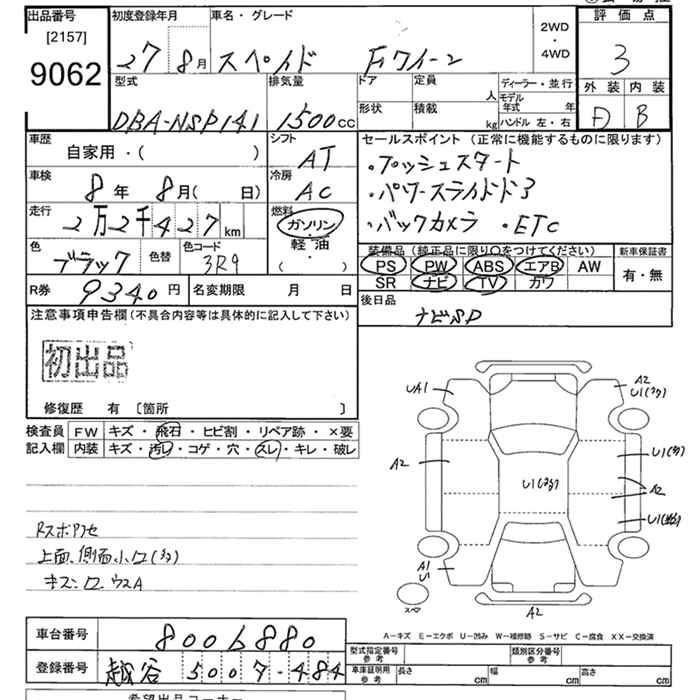 出品番号
[2157]
9062
初度登録年月
27 8月
車名・グレード
スペイド Fクイーン
2WD
・
4WD
評価点
3
外装 内装
D B
型式
DBA-NSP141
排気量
1500cc
ドア 定員
人
形状 積載
kg
ディーラー・並行
モデル年式 年
ハンドル 左・右
車歴
自家用・( )
シフト
AT
セールスポイント(正常に機能するものに限ります)
・プッシュスタート
・パワースライドドア
・バックカメラ ・ETC
車検
8年 8月( 日)
冷房
AC
走行
2万2千427km
燃料
ガソリン・
軽油・
( )
色
ブラック
色替
色コード
3R9
装備品(純正品に限り○をつけてください)
PS PW ABS エアB AW
SR ナビ TV カワ
新車保証書
有・無
R券 9340円
名変期限 月 日
後日品
ナビSD
注意事項申告欄(不具合内容等は具体的に記入して下さい)
初出品
修復歴 有 〔箇所 〕
検査員記入欄
FW キズ・飛石・ヒビ割・リペア跡・×要
内装 キズ・汚レ・コゲ・穴・スレ・キレ・破レ
上面、側面小口(多)
UA1
A2
U1(多)
A2
U1(多)
U1(多)
A2
A1
U1
スペア
A2
A−キズ E−エクボ U−凹み W−補修跡 S−サビ C−腐食 XX−交換済
車台番号
8006880
登録番号
越谷 500 7-484
型式指定番号
参考
類別区分番号
参考
車庫証明用
参考
長さ cm 幅 cm 高さ cm
希望出品コーナー